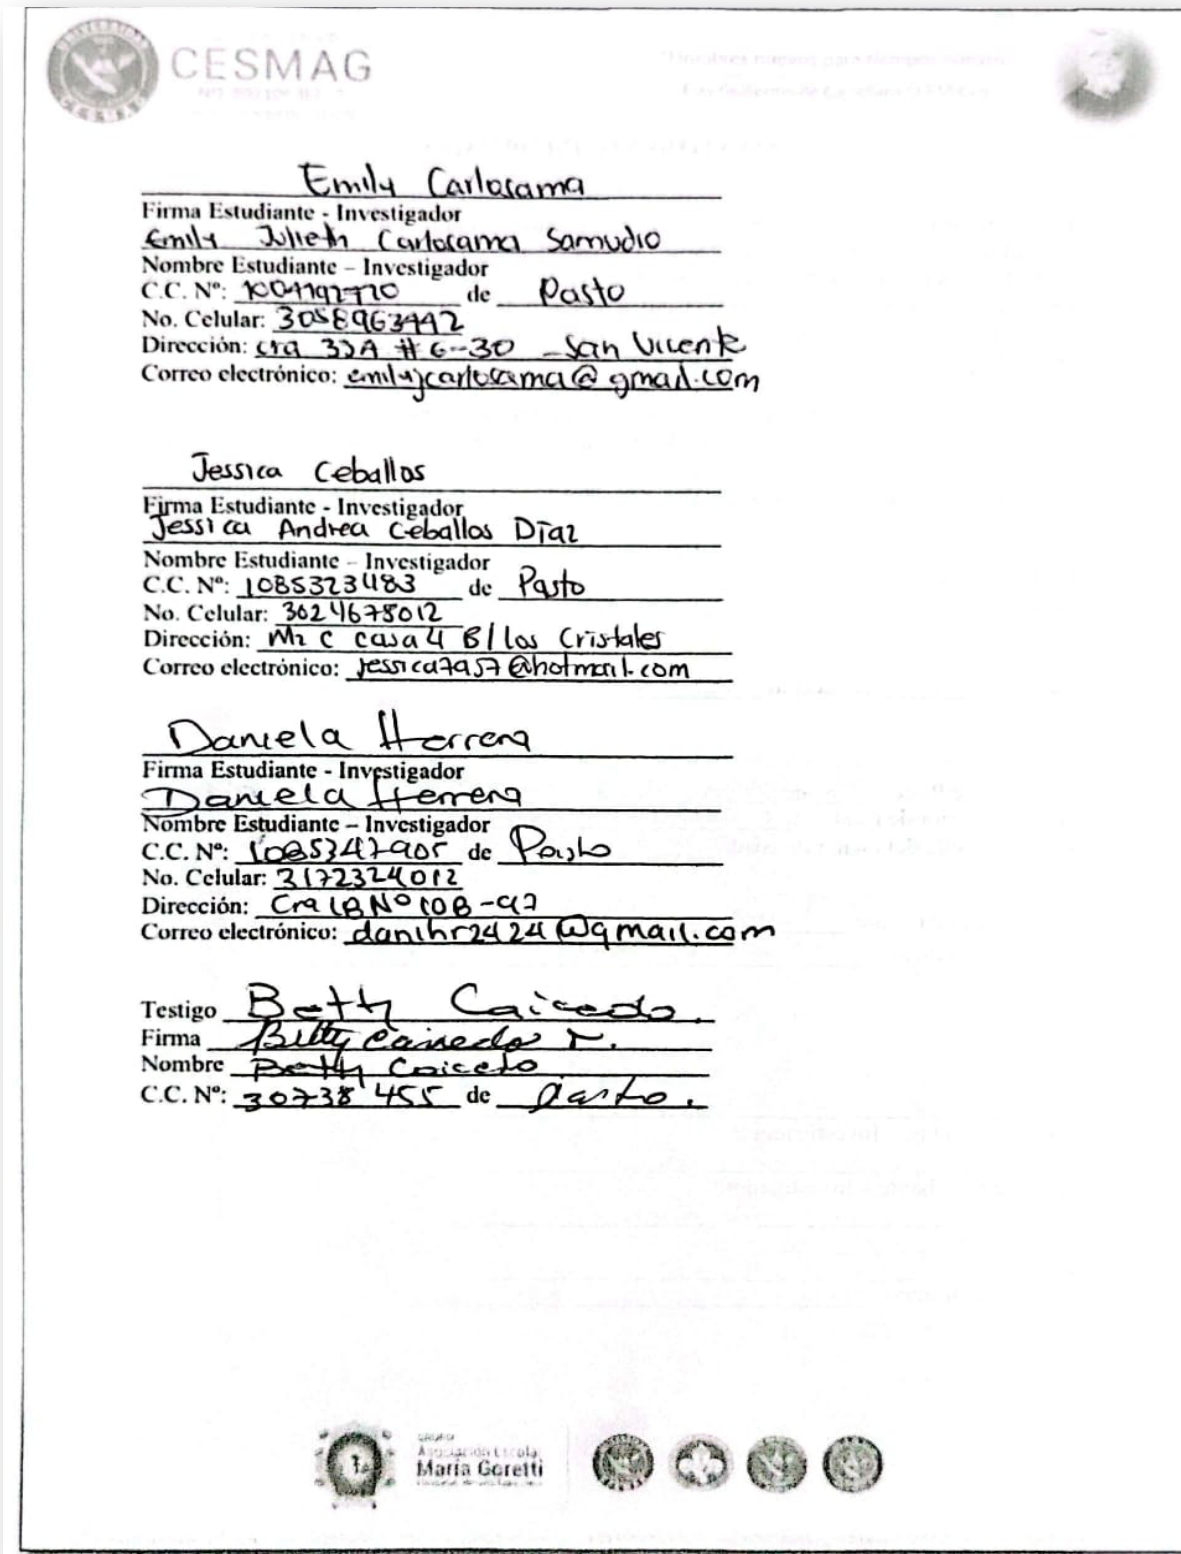 CESMAG
Emily Carlosama
Firma Estudiante - Investigador
Emily Julieth Carlosama Samudio
Nombre Estudiante – Investigador
C.C. Nº: de Pasto
No. Celular: 3058963442
Dirección: cra 33A # 6-30 - San Vicente
Correo electrónico: emilyjcarlosama@gmail.com
Jessica Ceballos
Firma Estudiante - Investigador
Jessica Andrea Ceballos Díaz
Nombre Estudiante – Investigador
C.C. Nº: 1085323483 de Pasto
No. Celular: 3024678012
Dirección: Mz C casa 4 B/ los Cristales
Correo electrónico: jessica7957@hotmail.com
Daniela Herrera
Firma Estudiante - Investigador
Daniela Herrera
Nombre Estudiante – Investigador
C.C. Nº: 1085347905 de Pasto
No. Celular: 3172324012
Dirección: Cra 1B Nº 10B-97
Correo electrónico: danihr2424@gmail.com
Testigo Betty Caicedo.
Firma Betty Caicedo
Nombre Betty Caicedo
C.C. Nº: 30738455 de Pasto.
Asociación Escolar
María Goretti